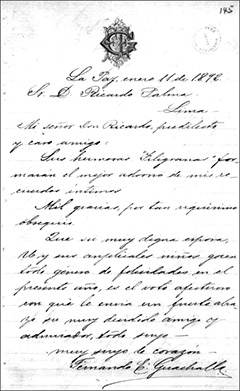 145
La Paz, enero 11 de 1892
Sr. D. Ricardo Palma
Lima
Mi señor don Ricardo, predilecto
y caro amigo:
Sus hermosas "Filigranas" for-
marán el mejor adorno de mis re-
cuerdos íntimos
Mil gracias, por tan exquisito
obsequio.
Que su muy digna esposa,
U. y sus angelicales niños gocen
todo género de felicidades en el
presente año, es el voto afectuoso
con que le envía un fuerte abra-
zo su muy decidido amigo y
admirador, todo suyo—
muy suyo de corazón
Fernando E. Guachalla